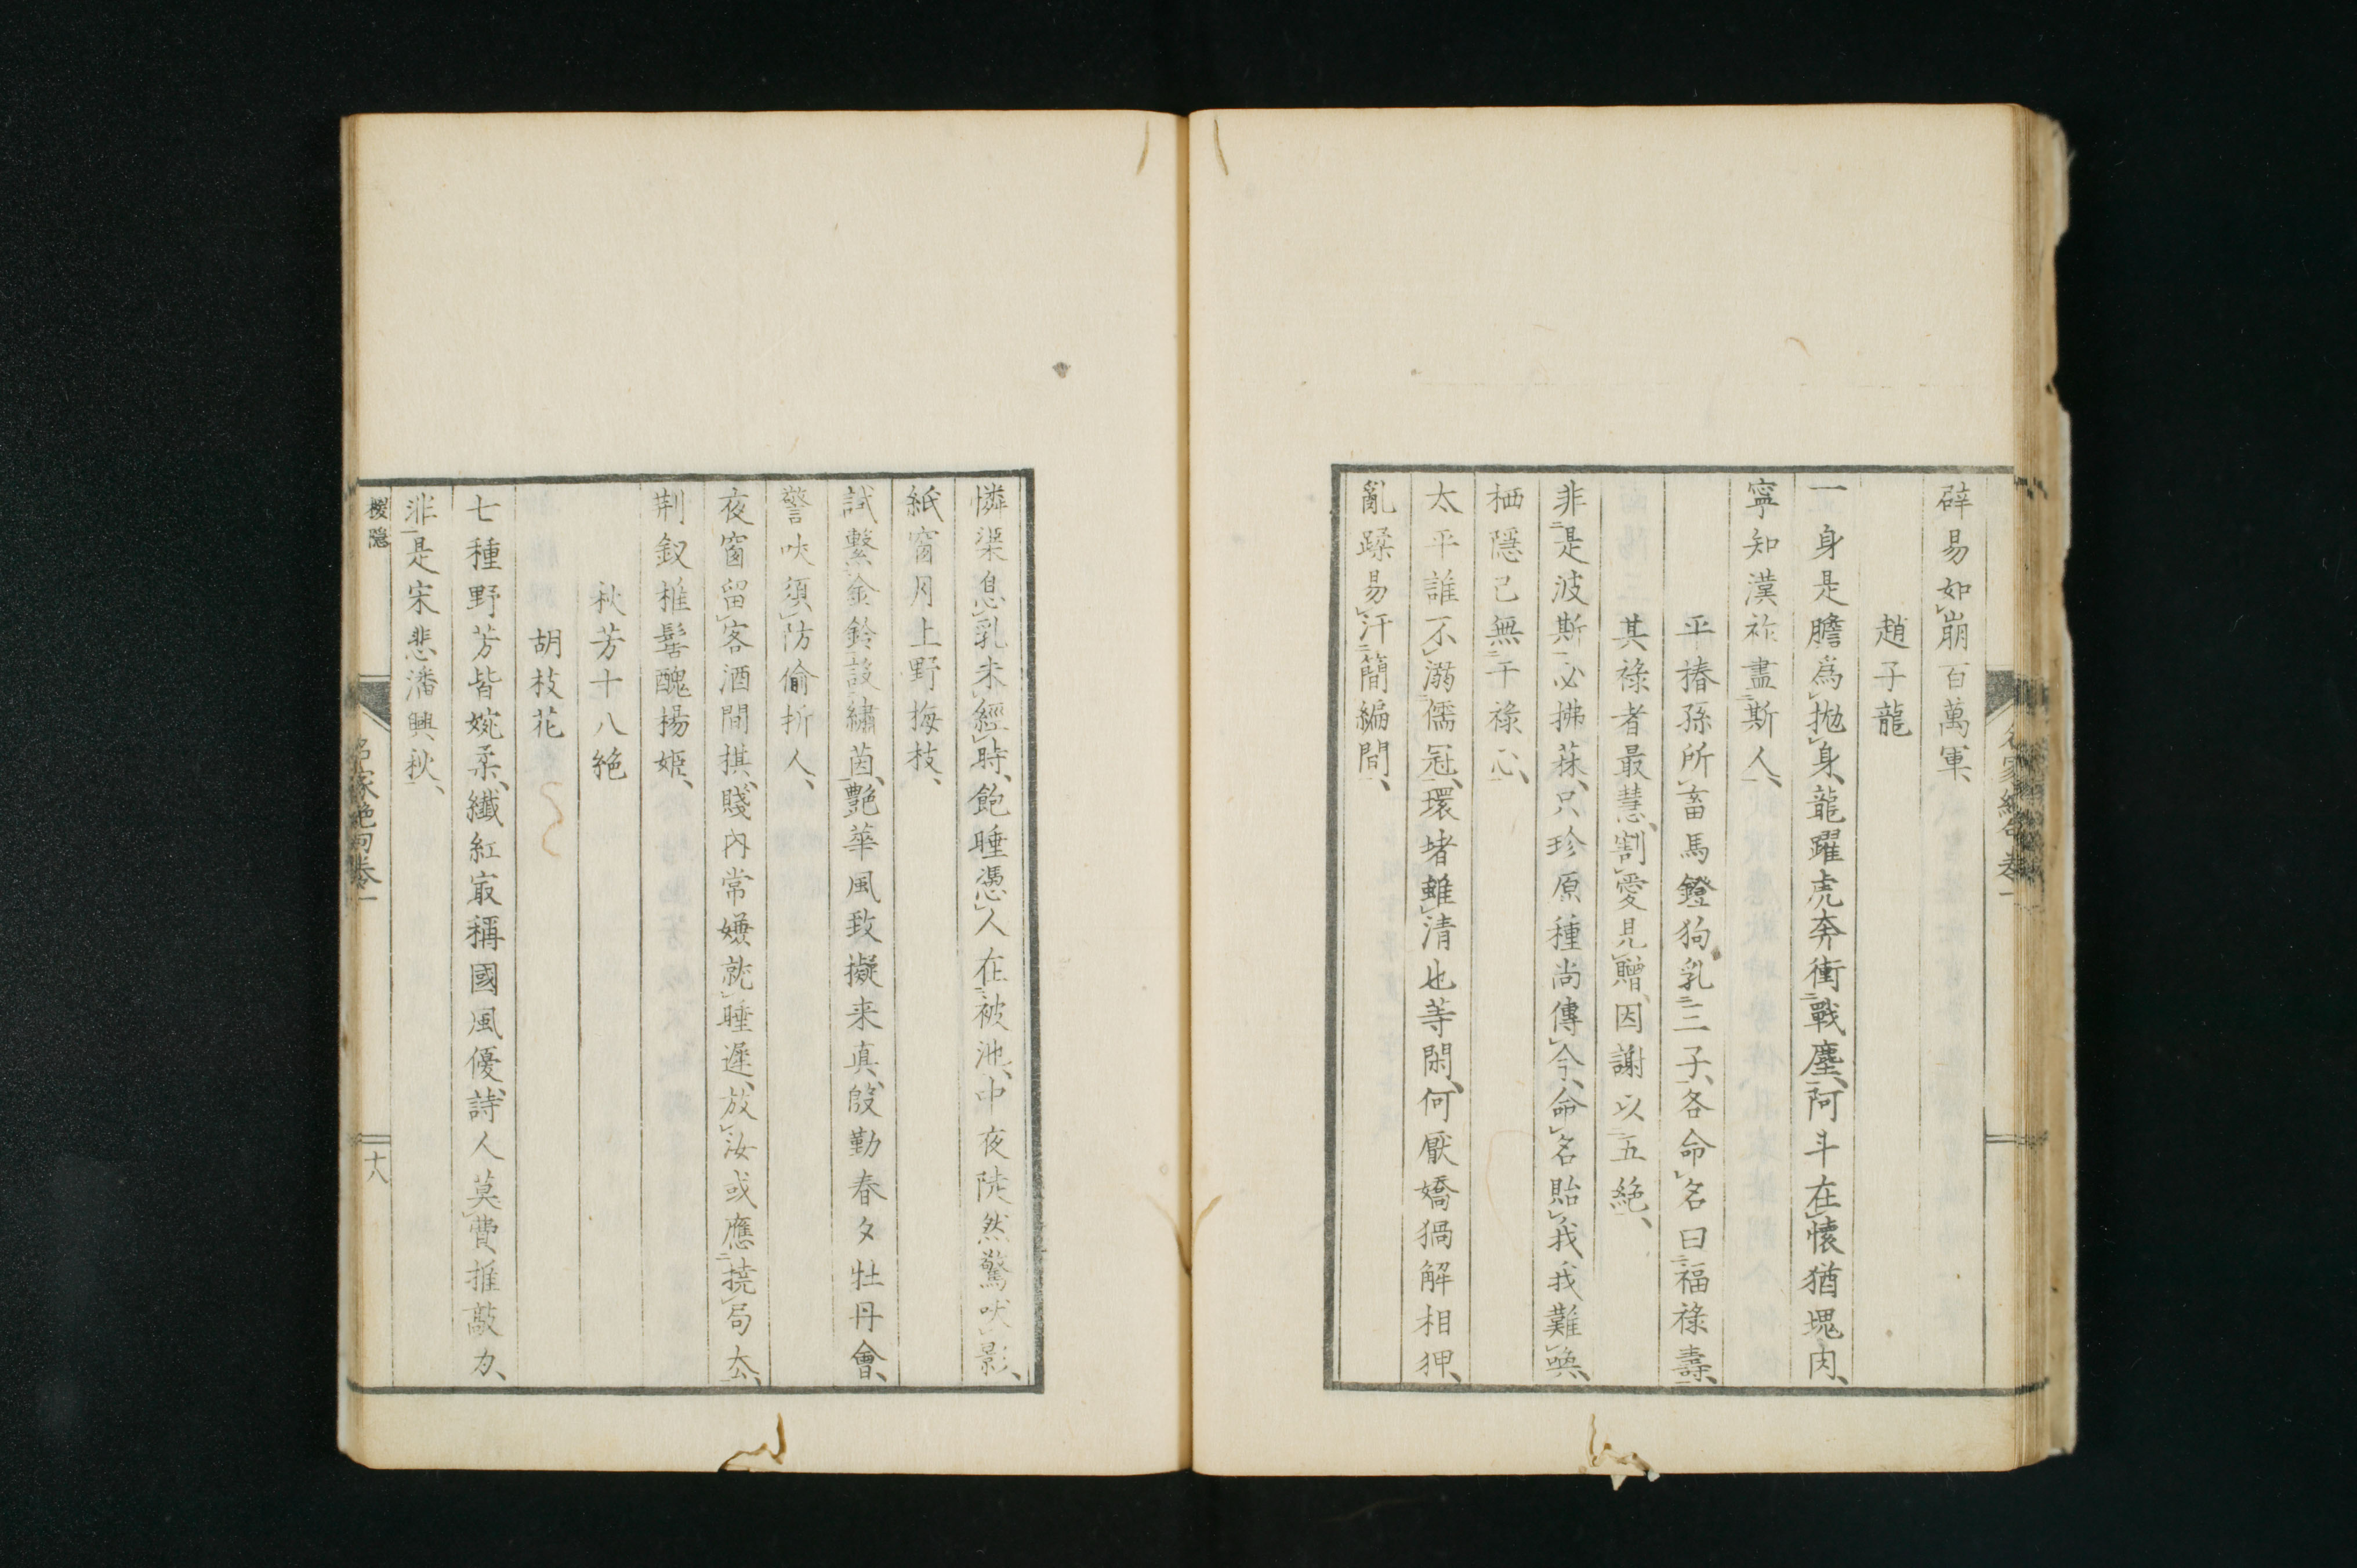 辟易如崩百萬軍、
趙子龍
一身是膽爲拋身、龍躍虎奔衝戰塵、阿斗在懷猶塊肉、
寧知漢祚盡斯人、
平椿孫所畜馬鐙狗乳三子、各命名曰福祿壽、
其祿者最慧、割愛見贈、因謝以五絶、
非是波斯必拂菻、只珍原種尚傳今、命名貽我我難喚、
栖隱已無干祿心、
太平誰不溺儒冠、環堵雖清也等閑、何厭嬌猧解相狎、
亂蹂易汗簡編間、
名家絶句卷一
憐渠息乳未經時、飽睡憑人在被池、中夜陡然驚吠影、
紙窗月上野梅枝、
試繫金鈴設繡茵、艷華風致擬来真、殷勤春夕牡丹會、
警吠須防偷折人、
夜窗留客酒間棋、賤內常嫌就睡遲、放汝或應撓局去、
荆釵椎髻醜楊姬、
秋芳十八絶
胡枝花
七種野芳皆婉柔、纖紅冣稱國風優、詩人莫費推敲力、
淮是宋悲潘興秋、
名家絶句卷一
十八